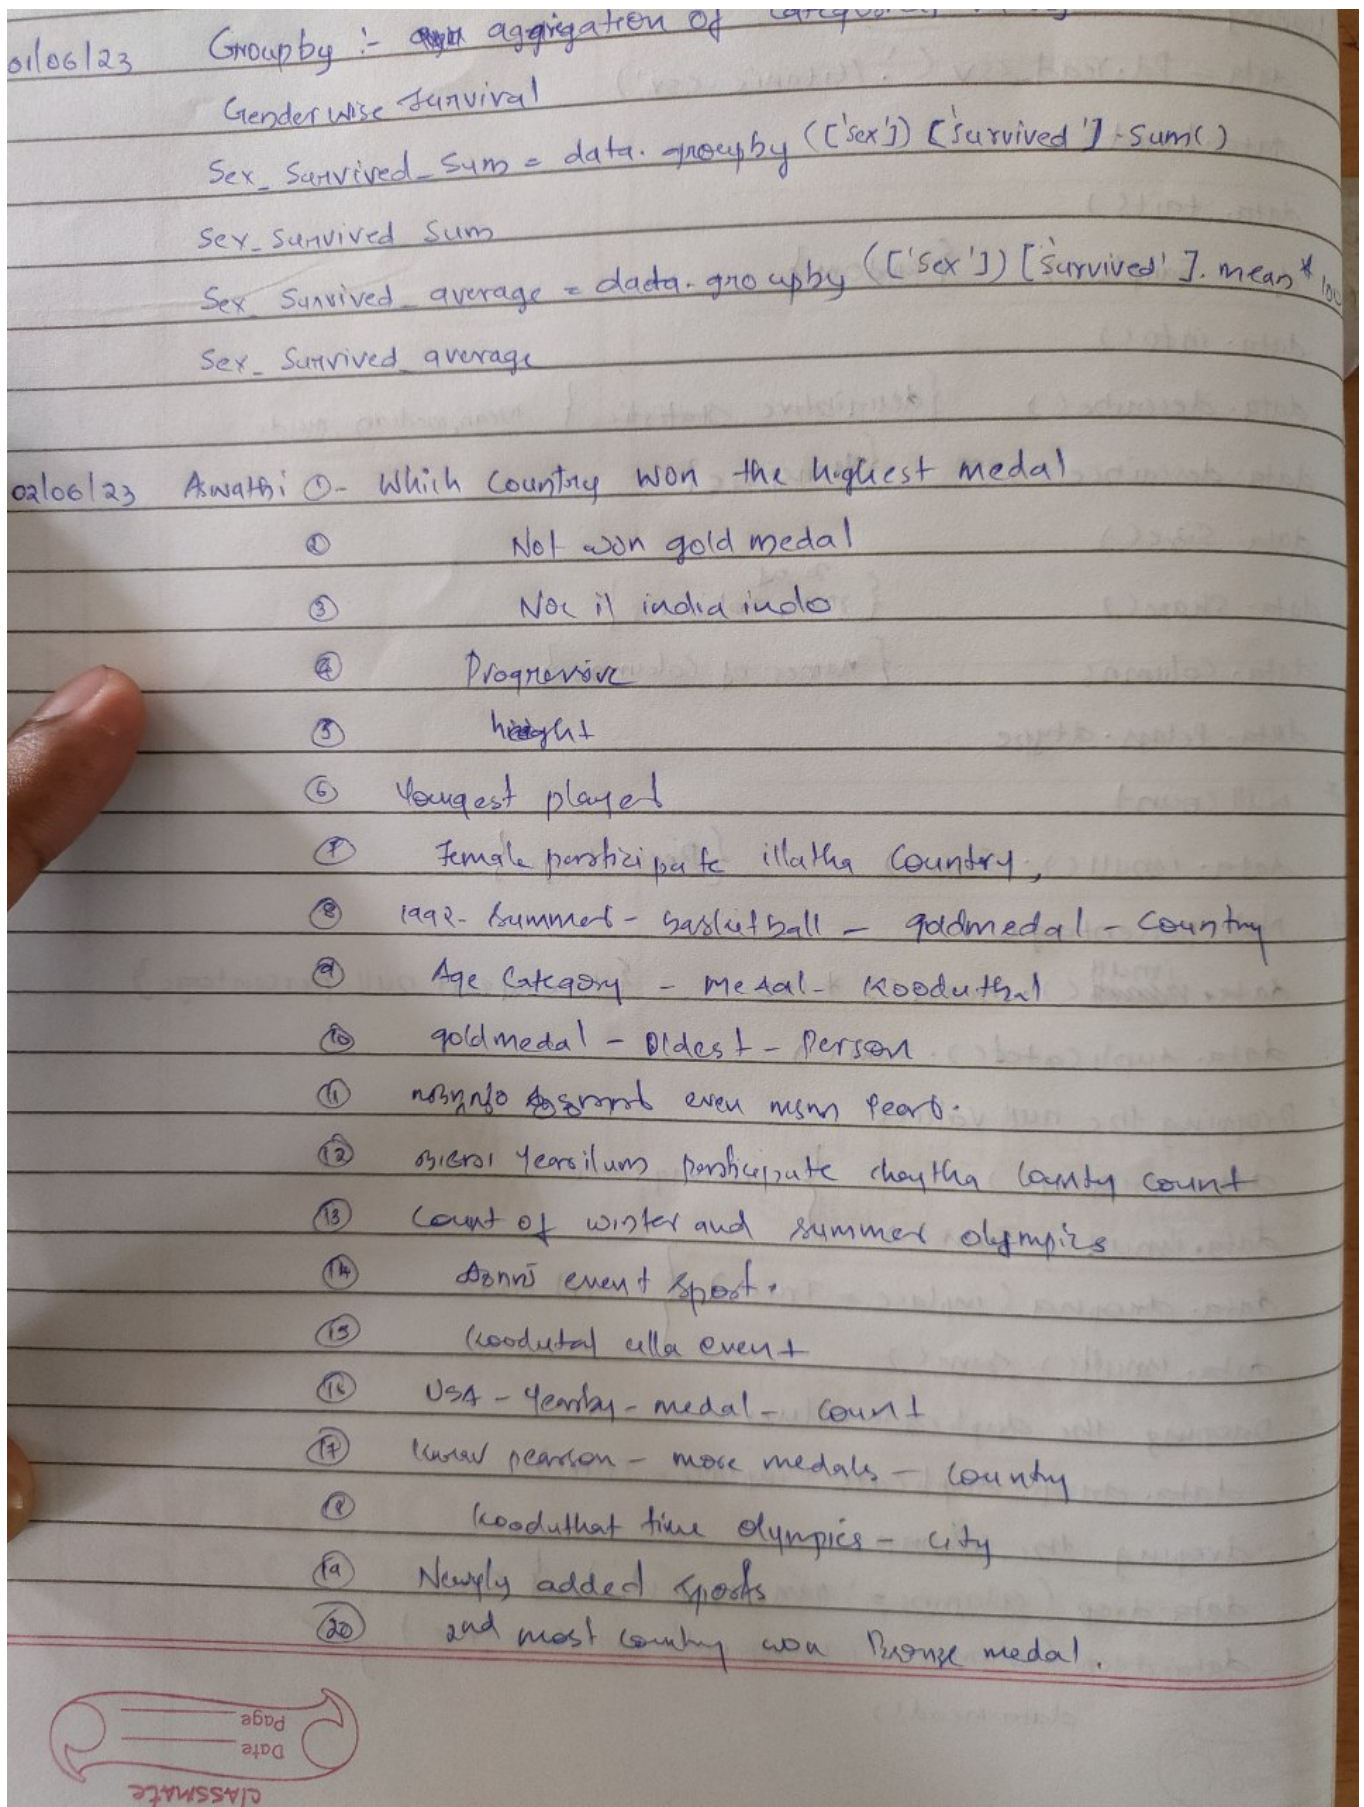 01/06/23 Groupby :- aggrigation of
Genderwise Survival
Sex_Survived_Sum = data.groupby (['sex']) ['survived'].Sum()
Sex_Survived Sum
Sex_Survived_average = dada.groupby (['Sex']) ['Survived'].mean *
Sex_Survived_average
02/06/23 Aswathi ①- Which Country won the highest medal
② Not won gold medal
③ Noc il india indo
④ Progressive
⑤ height
⑥ Youngest player
⑦ Female participate illatha Country,
⑧ 1992- Summer - basketball - goldmedal - Country
⑨ Age Category - Medal - Kooduthal
⑩ goldmedal - Oldest - Person
⑪ even Year.
⑫ Yearsilum participate cheytha County Count
⑬ Count of winter and summer olympics
⑭ event sport.
⑮ Koodutal ulla event
⑯ USA - Yearby - medal - Count
⑰ pearson - more medals - Country
⑱ Kooduthat time Olympics - City
⑲ Newly added sports
⑳ 2nd most country won Bronze medal.
classmate
Date
Page